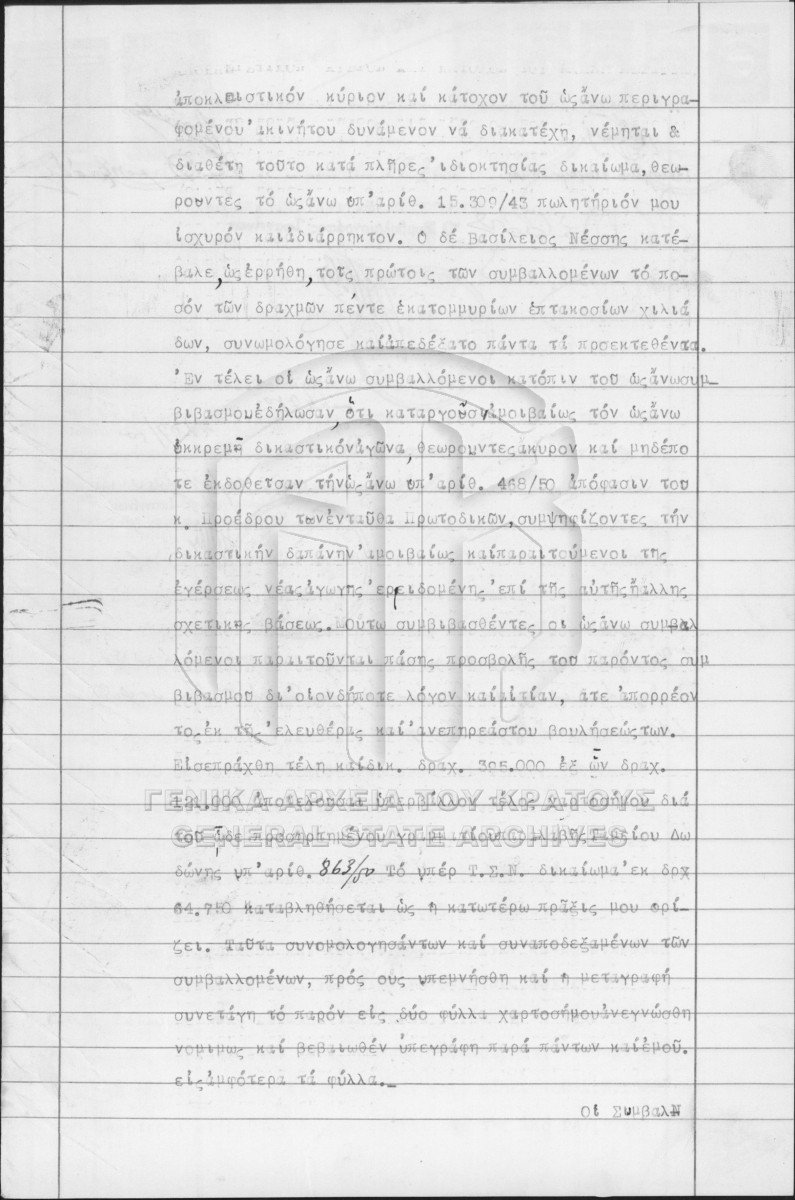 ἀποκλειστικόν κύριον καί κάτοχον τοῦ ὡςἄνω περιγρα-
φομένου ἀκινήτου δυνάμενον νά διακατέχη, νέμηται &
διαθέτη τοῦτο κατά πλῆρες ἰδιοκτησίας δικαίωμα, θεω-
ροῦντες τό ὡςἄνω ὑπ' ἀρίθ. 15.309/43 πωλητήριόν μου
ἰσχυρόν καιἀδιάρρηκτον. Ὁ δέ Βασίλειος Νέσσης κατέ-
βαλε, ὡςἐρρήθη, τοῖς πρώτοις τῶν συμβαλλομένων τό πο-
σόν τῶν δραχμῶν πέντε ἑκατομμυρίων ἑπτακοσίων χιλιά
δων, συνωμολόγησε καίἀπεδέξατο πάντα τά προεκτεθέντα.
Ἐν τέλει οἱ ὡςἄνω συμβαλλόμενοι κατόπιν τοῦ ὡςἄνωσυμ_
βιβασμοῦἐδήλωσαν, ὅτι καταργοῦσινἀμοιβαίως τόν ὡςἄνω
ἐκκρεμῆ δικαστικόνἀγῶνα, θεωροῦντεςἄκυρον καί μηδέπο
τε ἐκδοθεῖσαν τήνὡςἄνω ὑπ' ἀρίθ. 468/50 ἀπόφασιν τοῦ
κ. Προέδρου τῶνἐνταῦθα Πρωτοδικῶν, συμψηφίζοντες τήν
δικαστικήν δαπάνην ἀμοιβαίως καίπαραιτούμενοι τῆς
ἐγέρσεως νέαςἀγωγῆς ἐρειδομένης ἐπί τῆς αὐτῆςἤἄλλης
σχετικῆς βάσεως. Οὕτω συμβιβασθέντες οἱ ὡςἄνω συμβαλ
λόμενοι παραιτοῦνται πάσης προσβολῆς τοῦ παρόντος συμ
βιβασμοῦ δι' οἱονδήποτε λόγον καίαἰτίαν, ἅτε ἀπορρέον
τοςἐκ τῆς ἐλευθέρας καί ἀνεπηρεάστου βουλήσεώςτων.
Εἰσεπράχθη τέλη καίδικ. δραχ. 305.000 ἐξ ὧν δραχ.
121.000 ἀποτελοῦσαι ὑπερβάλλον τέλος χαρτοσήμου διά
τοῦ ὧδε προσηρτημένου γραμματίου Δημ. Ταμείου Δω
δώνης ὑπ' ἀρίθ. 863/50 Τό ὑπέρ Τ.Σ.Ν. δικαίωμα ἐκ δρχ
64.750 καταβληθήσεται ὡς ἡ κατωτέρω πρᾶξις μου ὁρί-
ζει. Ταῦτα συνομολογησάντων καί συναποδεξαμένων τῶν
συμβαλλομένων, πρός οὕς ὑπεμνήσθη καί ἡ μεταγραφή
συνετάγη τό παρόν εἰς δύο φύλλα χαρτοσήμουἀνεγνώσθη
νομίμως καί βεβαιωθέν ὑπεγράφη παρά πάντων καίἐμοῦ.
εἰςἀμφότερα τά φύλλα._
Οἱ ΣυμβαλΝ
ΓΕΝΙΚΑ ΑΡΧΕΙΑ ΤΟΥ ΚΡΑΤΟΥΣ
GENERAL STATE ARCHIVES